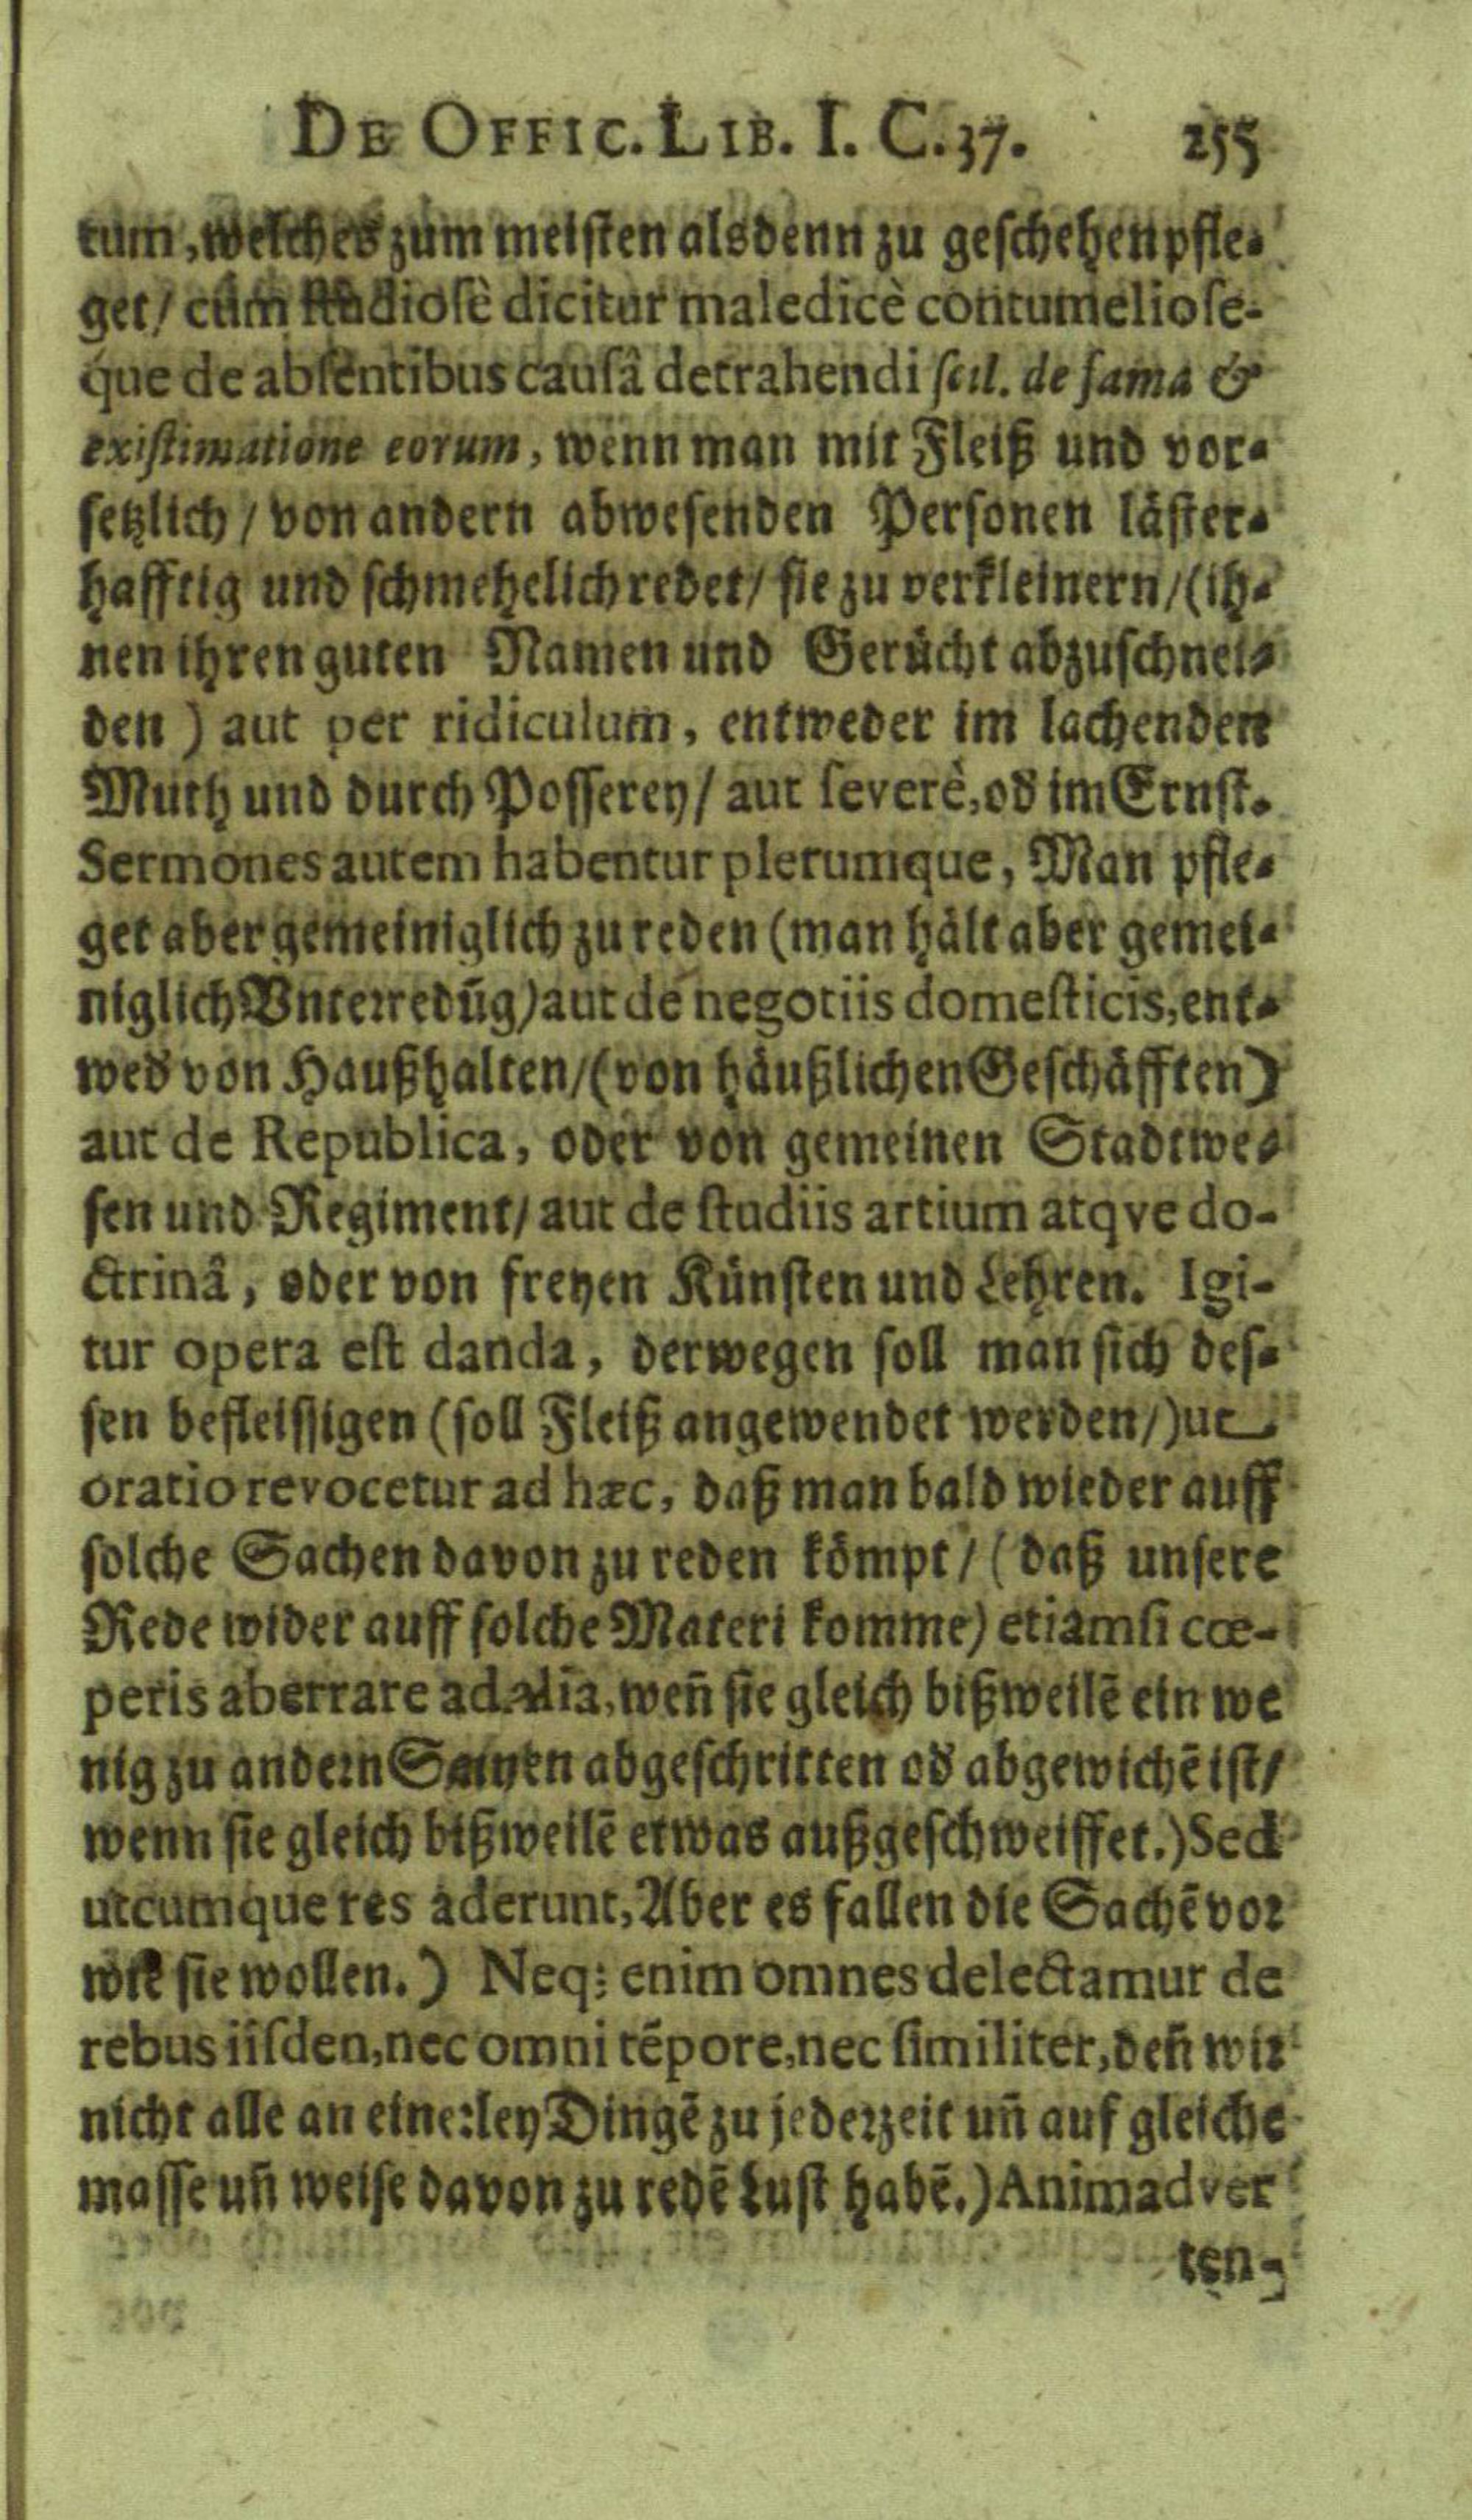 DE OFFIC. LIB. I. C. 37. 255
tum, welches zum meisten alsdenn zu geschehen pfle-
get/ cùm studiosè dicitur maledicè contumeliose-
que de absentibus causâ detrahendi scil. de fama &
existimatione eorum, wenn man mit Fleiß und vor-
setzlich / von andern abwesenden Personen läster-
hafftig und schmehelich redet/ sie zu verkleinern/(ih-
nen ihren guten Namen und Gerücht abzuschnei-
den ) aut per ridiculum, entweder im lachenden
Muth und durch Posserey/ aut severè, od im Ernst.
Sermones autem habentur plerumque, Man pfle-
get aber gemeiniglich zu reden (man hält aber gemei-
niglich Vnterredūg) aut de negotiis domesticis, ent-
wed von Haußhalten/(von häußlichen Geschäfften)
aut de Republica, oder von gemeinen Stadtwe-
sen und Regiment/ aut de studiis artium atqve do-
ctrinâ, oder von freyen Künsten und Lehren. Igi-
tur opera est danda, derwegen soll man sich des-
sen befleissigen (soll Fleiß angewendet werden/) ut
oratio revocetur ad hæc, daß man bald wieder auff
solche Sachen davon zu reden kömpt/ (daß unsere
Rede wider auff solche Materi komme) etiamsi cœ-
peris aberrare ad alia, weñ sie gleich bißweilē ein we
nig zu andern abgeschritten od abgewichē ist/
wenn sie gleich bißweilē etwas außgeschweiffet.) Sed
utcumque res aderunt, Aber es fallen die Sachē vor
wie sie wollen.) Neq; enim omnes delectamur de
rebus iisden, nec omni tēpore, nec similiter, deñ wir
nicht alle an einerley Dingē zu jederzeit uñ auf gleiche
masse uñ weise davon zu redē Lust habē.) Animadver
ten-